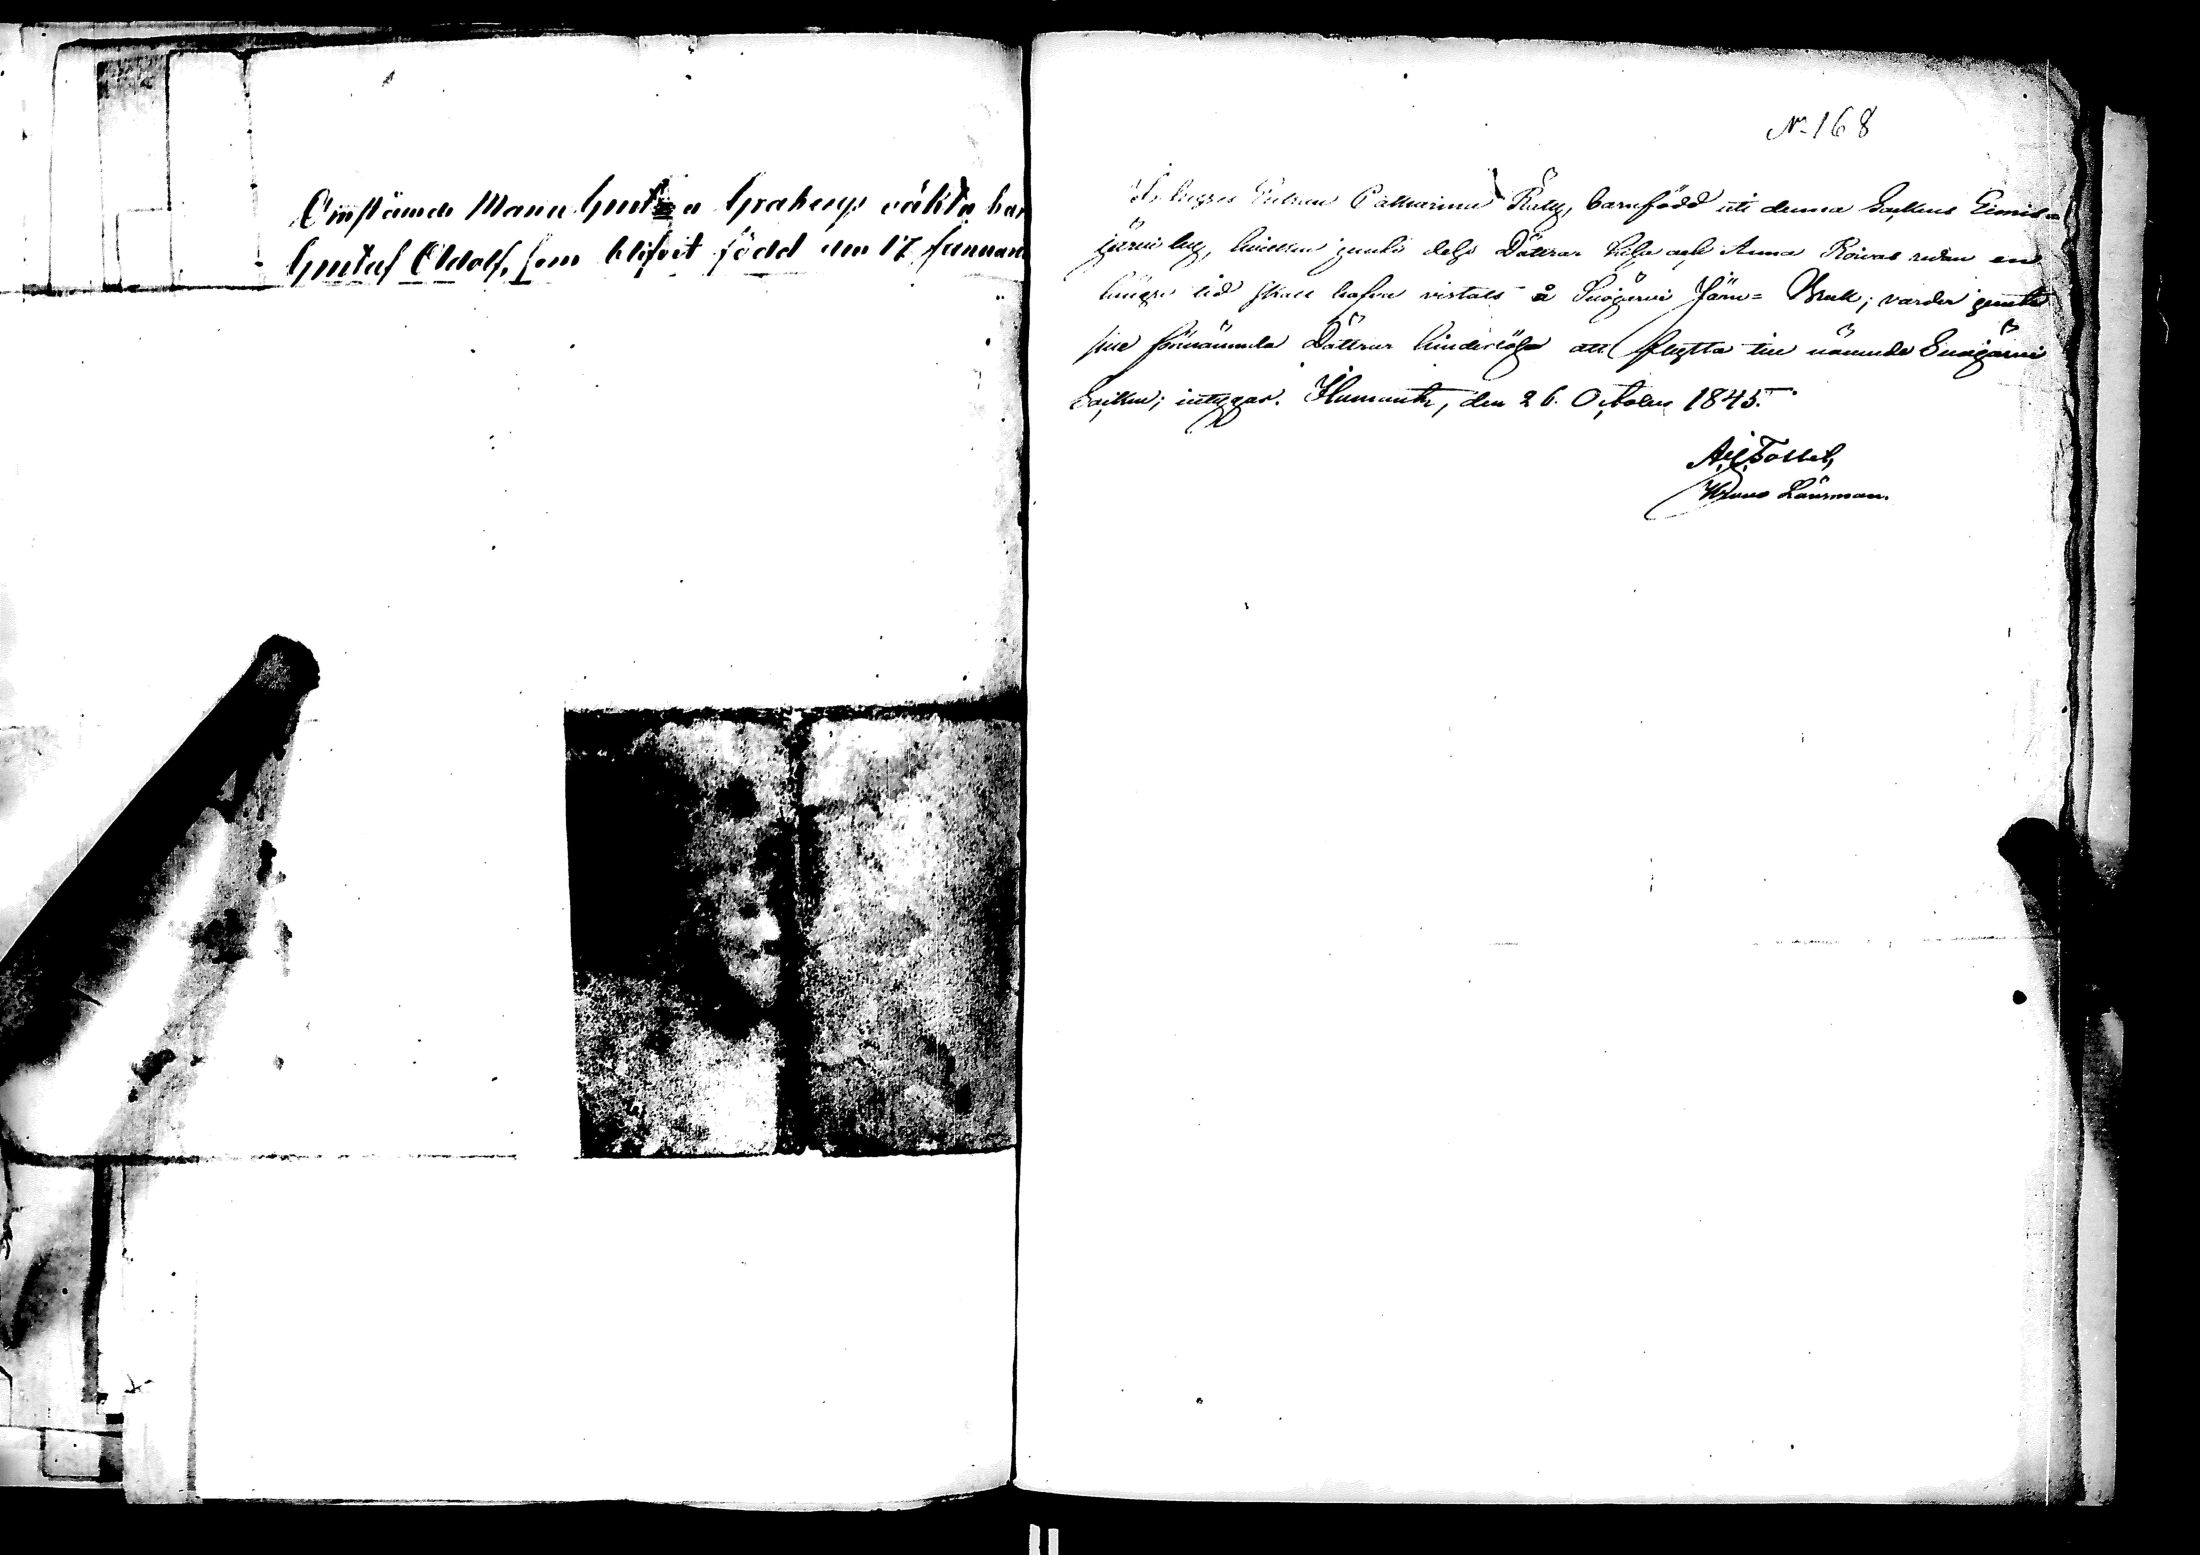 Omstämde Mana Gust a Grahns väkta bar
Gustaf Adolf, som blifvit född den 17 Januari
No 168
Inhyses Enkan Catharina Räty, barnfödd uti denna Sockens Eimis=
järvi by, hvilken jemte dess Döttrar Hilja och Anna Roivas redan en
längre tid skall hafva vistats å Suojärvi Järn= Bruk; varder jemte
sine förenämnda Döttrar hinderlöse att flytta till nämnde Suojärvi
Socken; intygar. Ilomants, den 26. October 1845.
Krono Länsman.